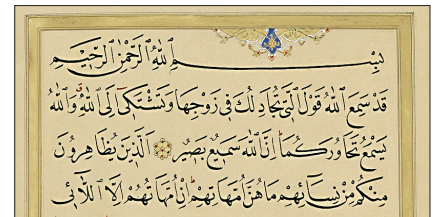 بِسْمِ اللَّهِ الرَّحْمٰنِ الرَّحِيمِ
قَدْ سَمِعَ اللَّهُ قَوْلَ الَّتِي تُجَادِلُكَ فِي زَوْجِهَا وَتَشْتَكِي إِلَى اللَّهِ وَاللَّهُ
يَسْمَعُ تَحَاوُرَكُمَا إِنَّ اللَّهَ سَمِيعٌ بَصِيرٌ الَّذِينَ يُظَاهِرُونَ
مِنْكُمْ مِنْ نِسَائِهِمْ مَا هُنَّ أُمَّهَاتِهِمْ إِنْ أُمَّهَاتُهُمْ إِلَّا اللَّائِي